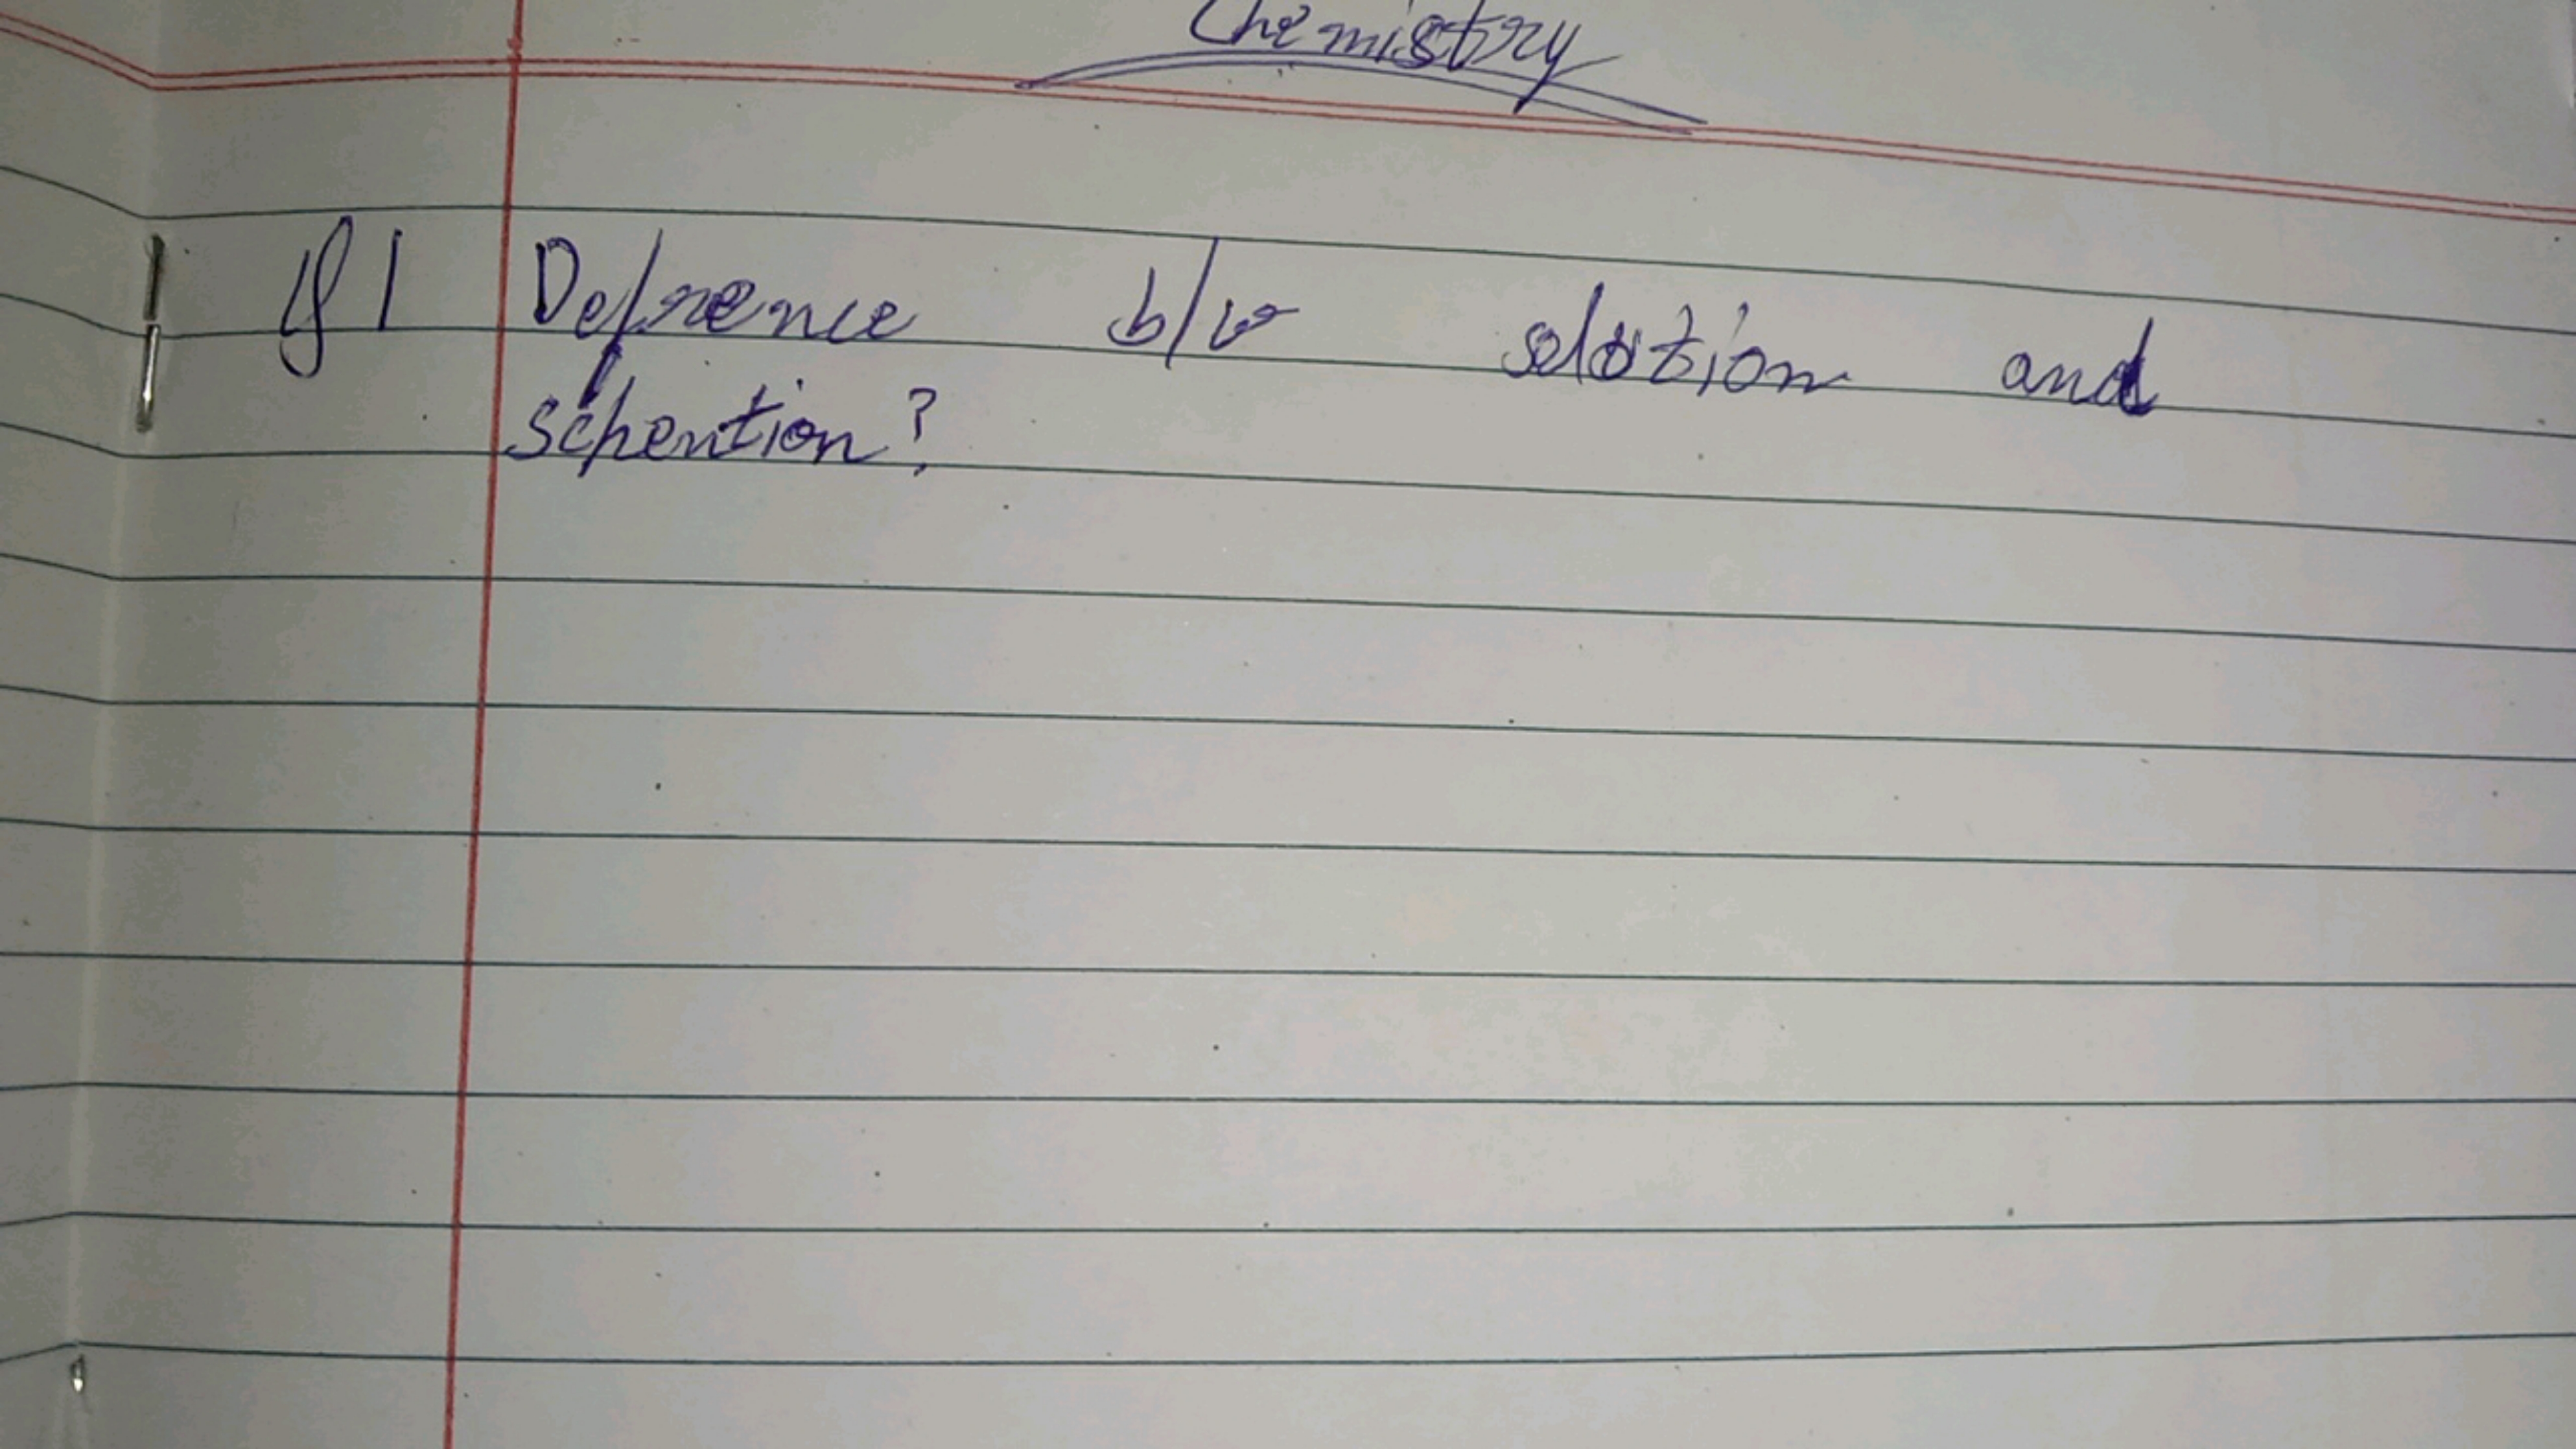 Chemistry
Q1 Defrence b/w selution and
schention?